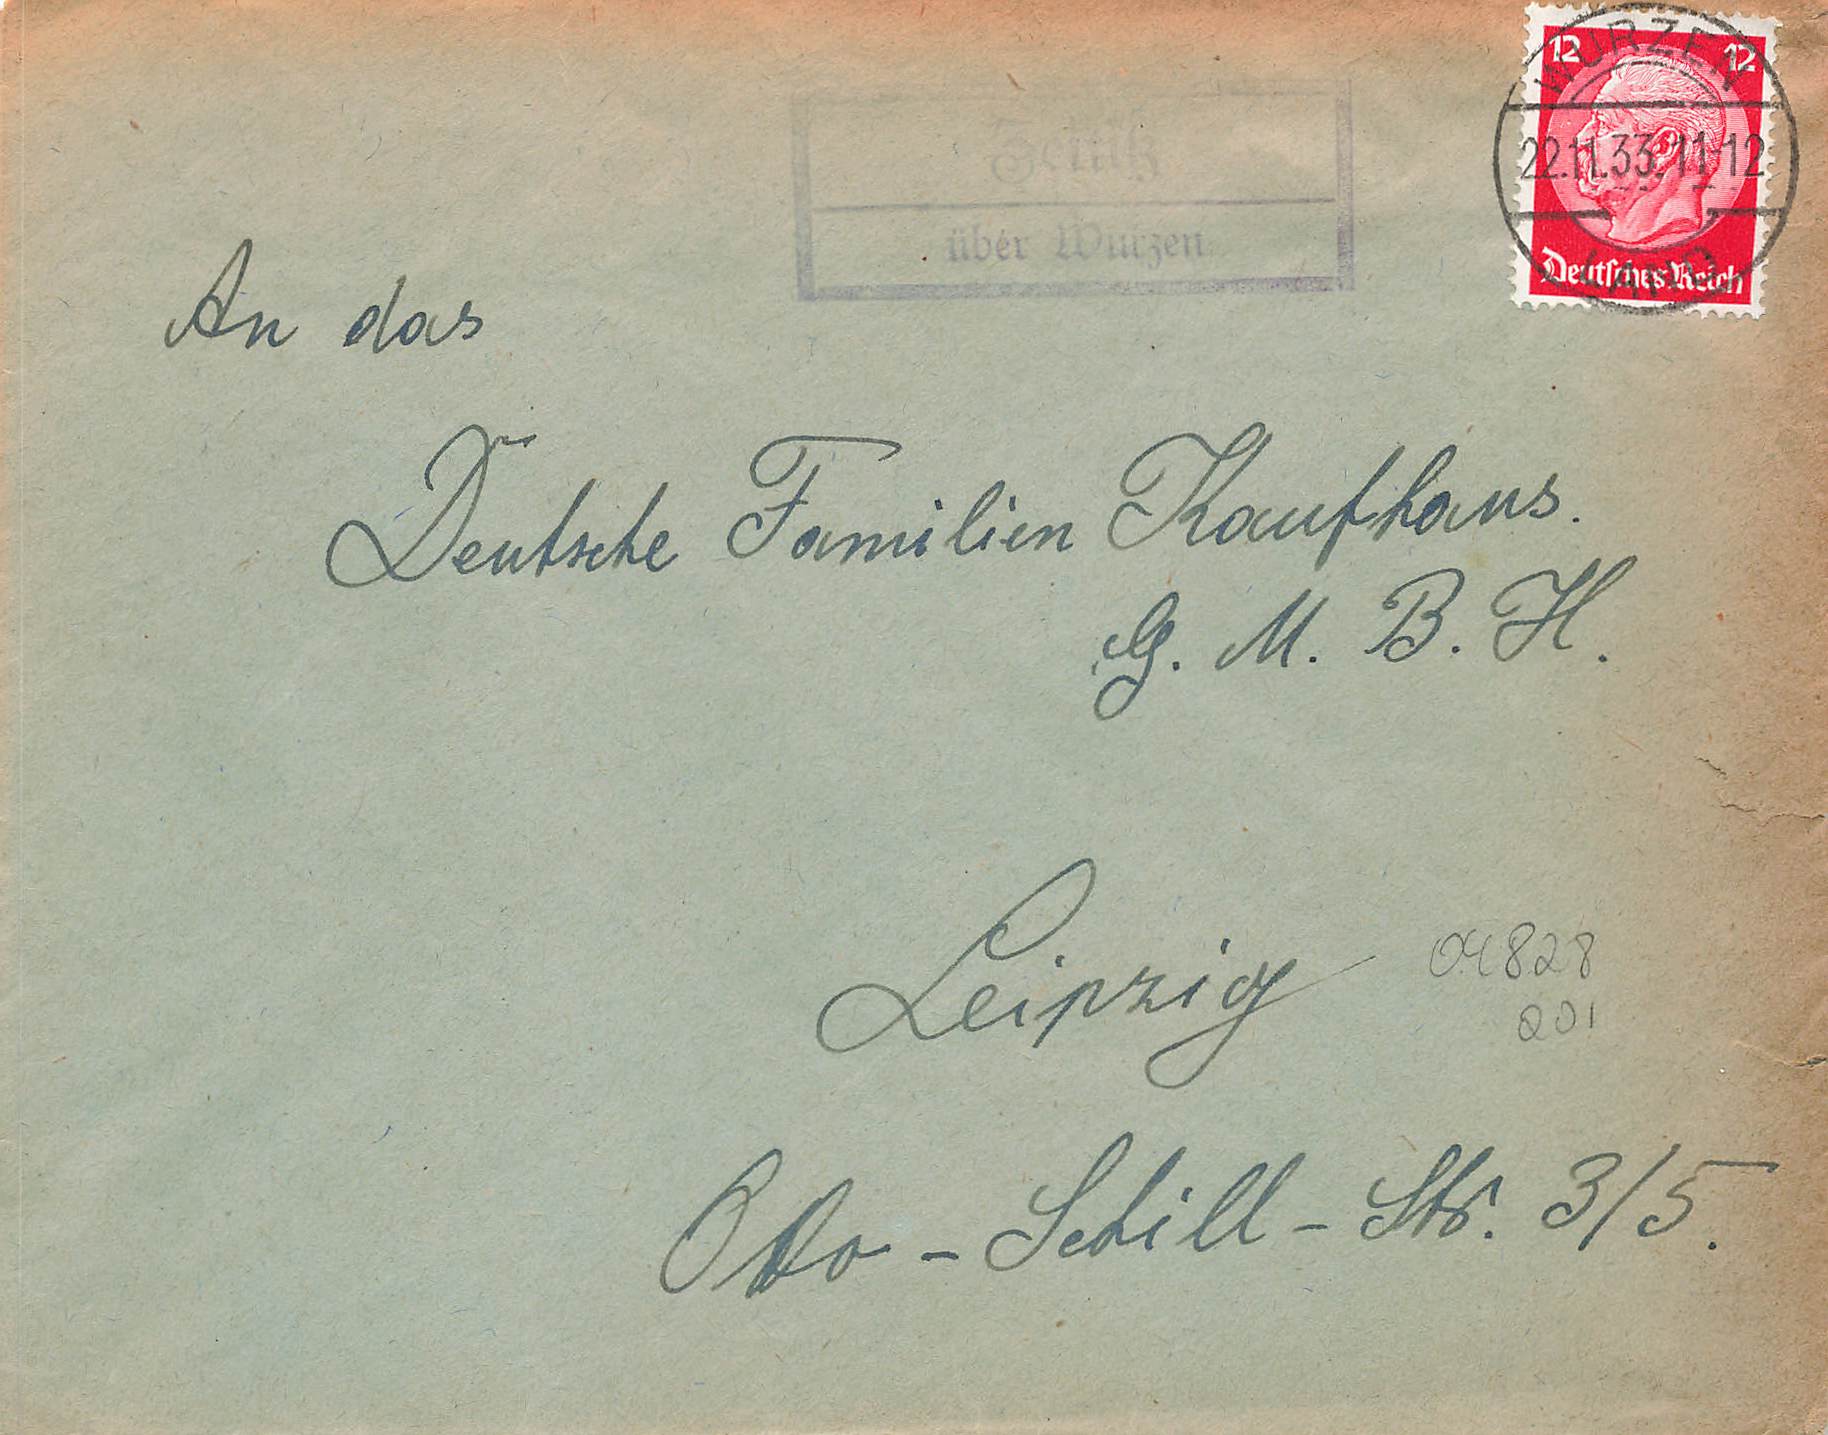 12 12
Deutsches Reich
WURZEN
22.11.33.11-12
LAND
über Wurzen
An das
Deutsche Familien Kaufhaus.
G. M. B. H.
Leipzig
04828
201
Otto - Schill - Str. 3/5.